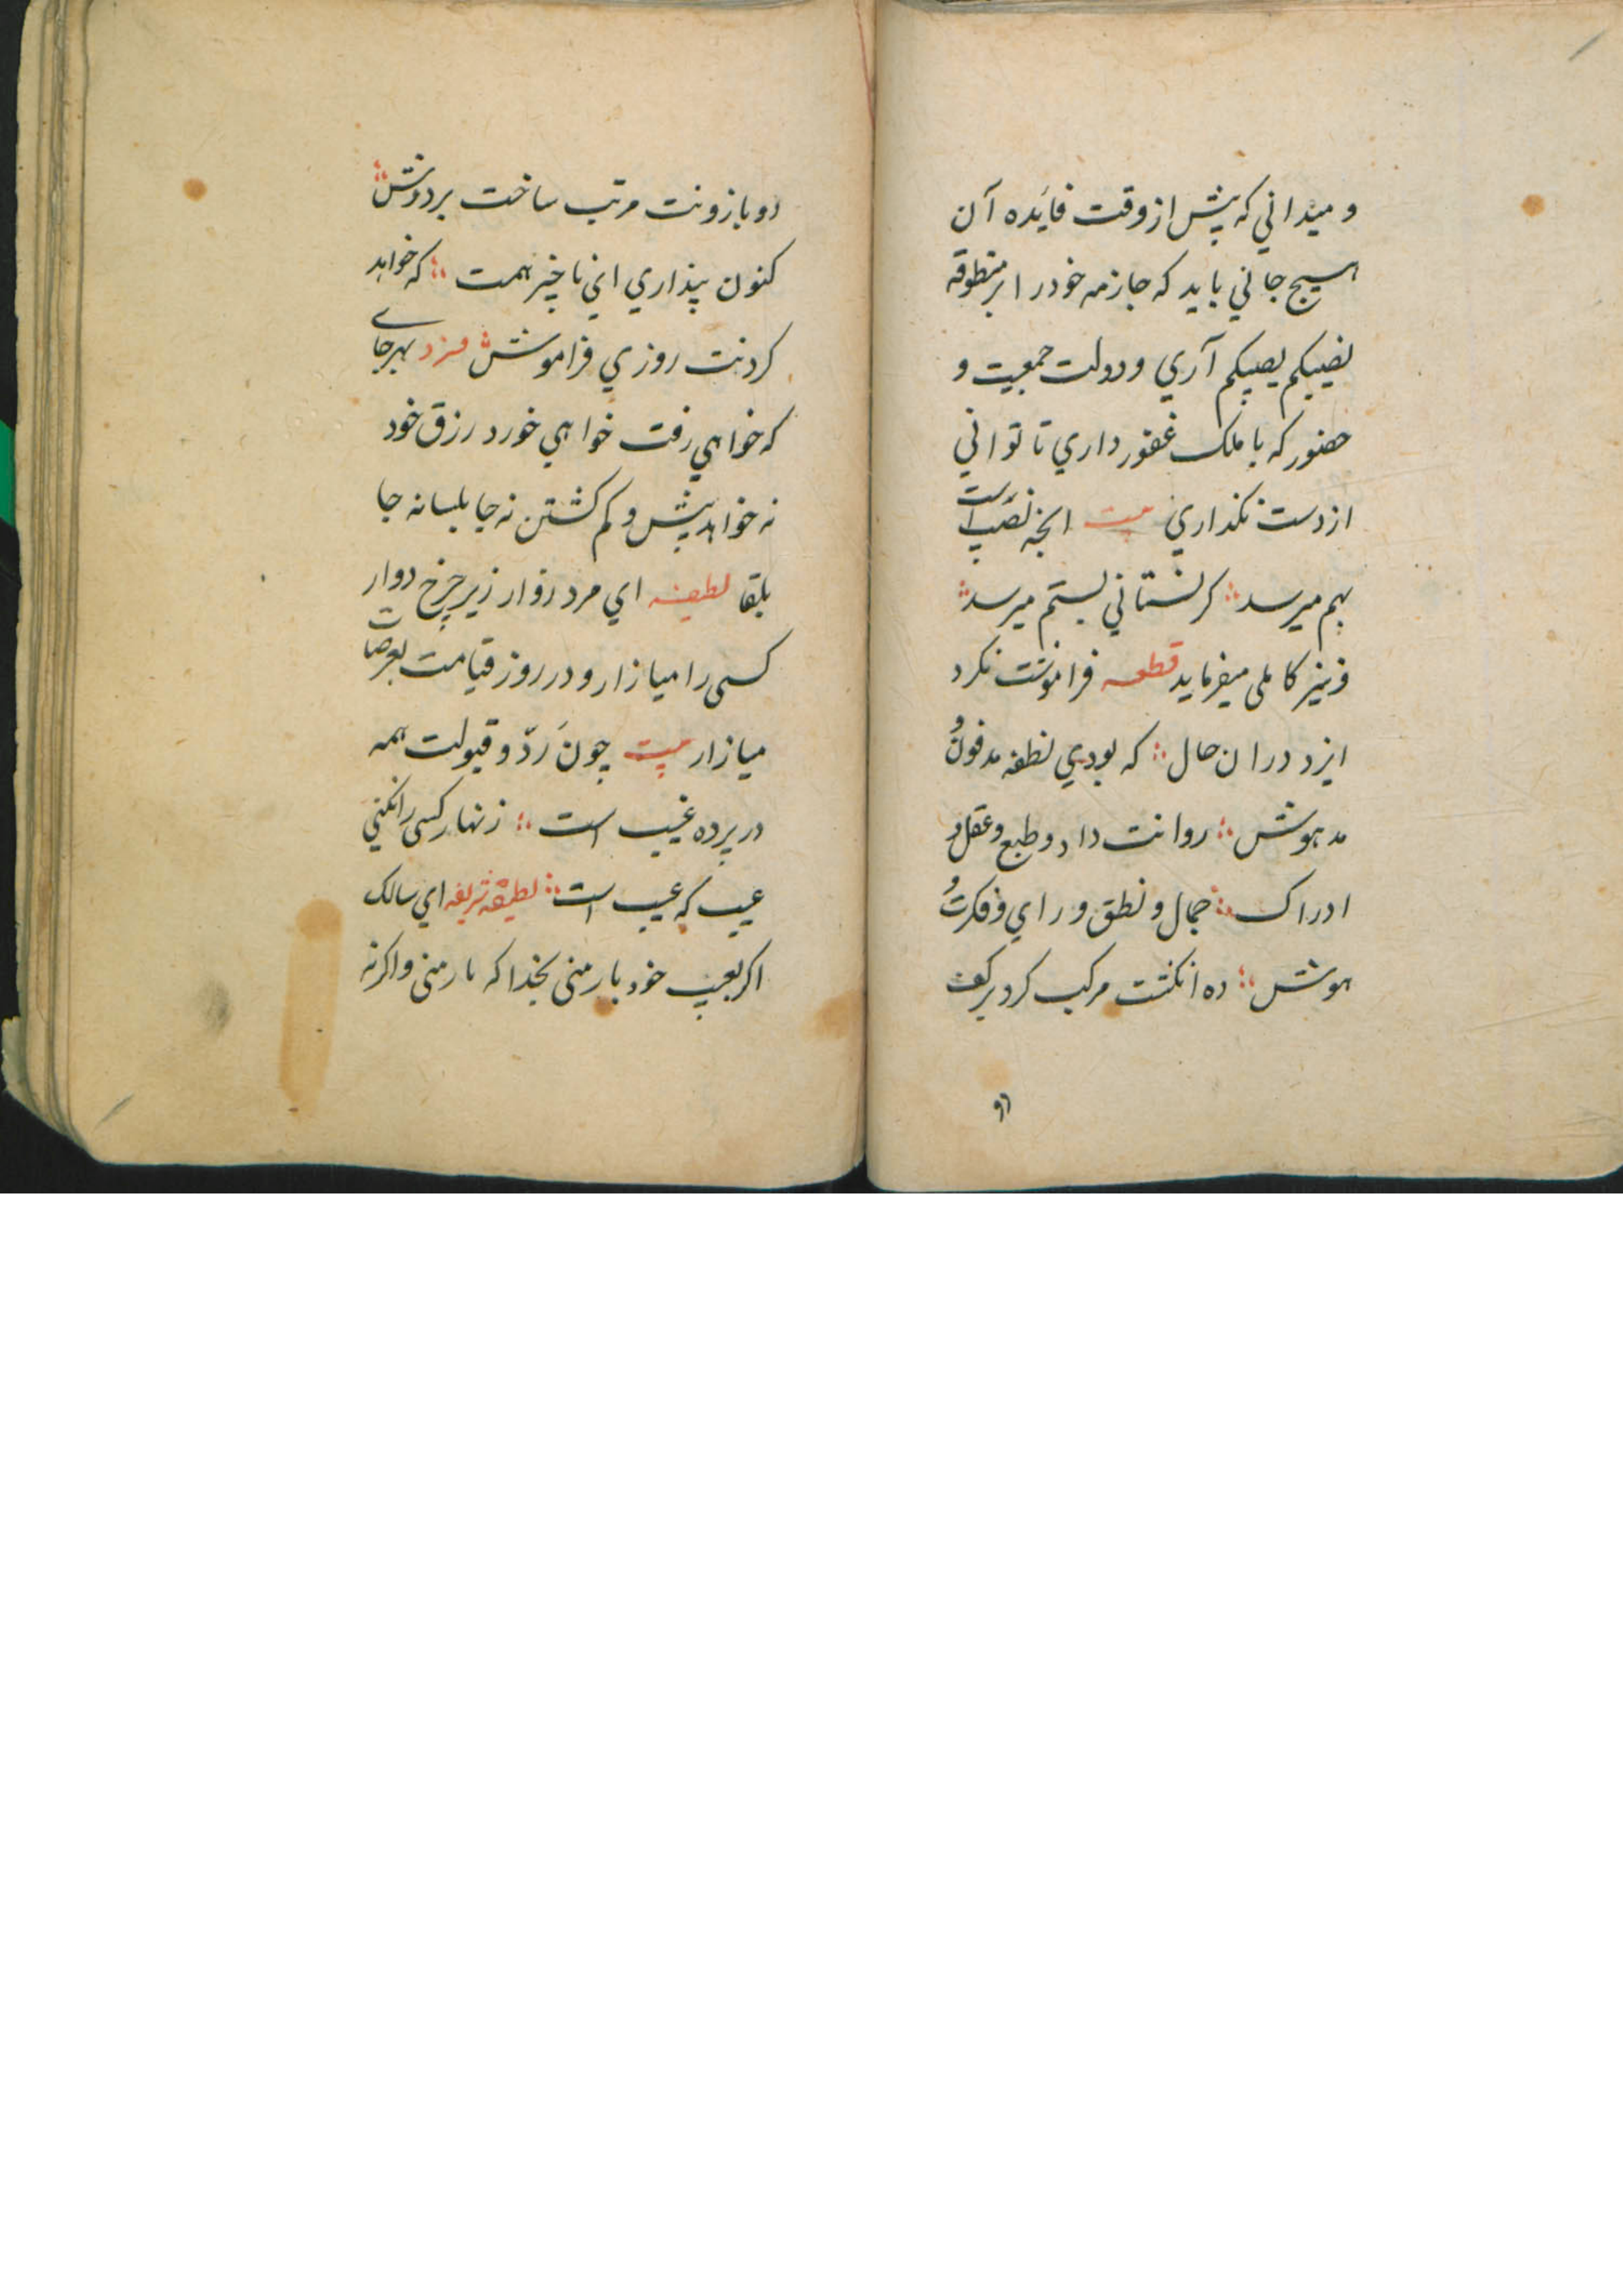 و میدانی که پیش از وقت فایده آن
هیچ جانی باید که جازمه خود را بر منطوقه
نصیبکم یصیبکم آری و دولت جمعیت و
حضور که با ملک غفور داری تا توانی
از دست نکذاری بیت انچه نصیب است
بهم میرسد ؞ کر نستانی بستم میرسد ؞
و نیز کاملی میفرماید قطعه فراموشت نکرد
ایزد دران حال ؞ که بودی نطفه مدفون و
مدهوش ؞ روانت داد و طبع و عقل و
ادراک ؞ جمال و نطق و رای و فکرت و
هوش ؞ ده انکشت مرکب کرد بر کف
دو بازونت مرتب ساخت بر دوش ؞
کنون پنداری ای ناچیز همت ؞ که خواهد
کردنت روزی فراموش ؞ فرد بهر جای
که خواهی رفت خواهی خورد رزق خود
نه خواهد بیش و کم کشتن نه جابلسا نه جا
بلقا لطیفه ای مرد رو از زیر چرخ دوار
کسی را میازار و در روز قیامت بعرصات
میازار بیت چون رد و قبولت همه
در پرده غیب است ؞ زنهار کسی را نکنی
عیب که عیب است ؞ لطیفه شریفه ای سالک
اکر بعیب خود بارمنی بخدا که بارمنی و اکرنه